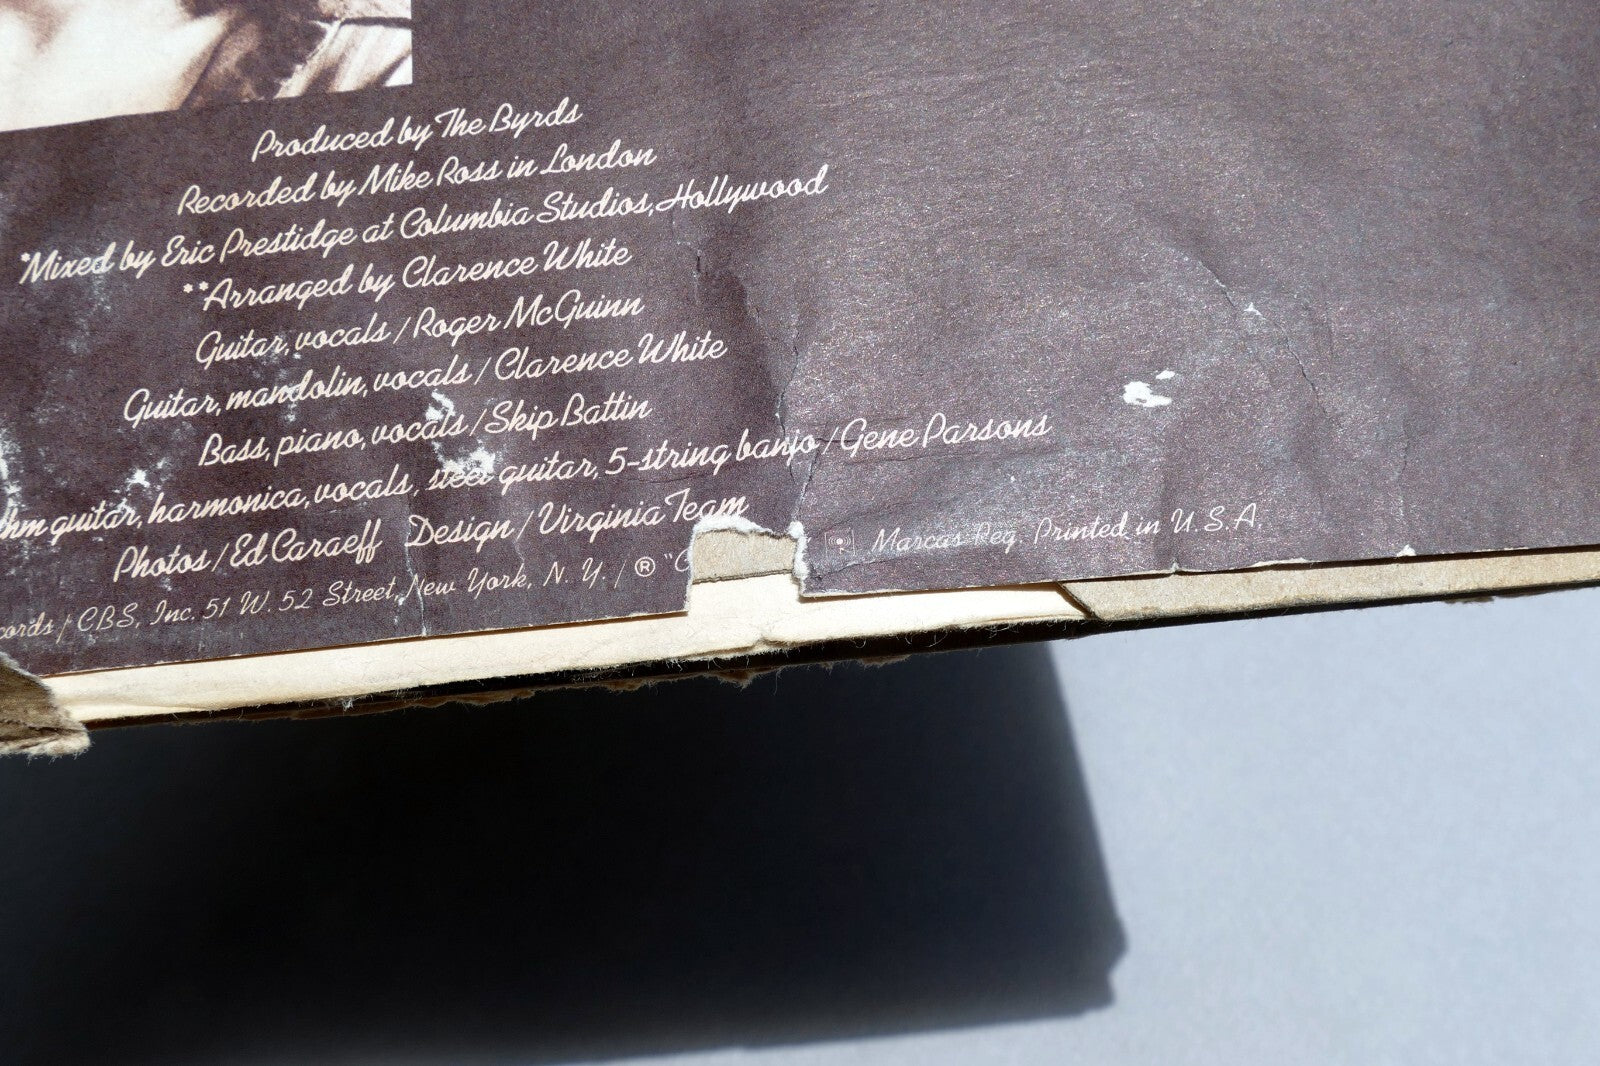 Produced by The Byrds
Recorded by Mike Ross in London
*Mixed by Eric Prestidge at Columbia Studios, Hollywood
**Arranged by Clarence White
Guitar, vocals / Roger McGuinn
Guitar, mandolin, vocals / Clarence White
Bass, piano, vocals / Skip Battin
hm guitar, harmonica, vocals, steel guitar, 5-string banjo / Gene Parsons
Photos / Ed Caraeff Design / Virginia Team
cords / CBS, Inc. 51 W. 52 Street, New York, N. Y. / ® "C Marcas Reg. Printed in U.S.A.